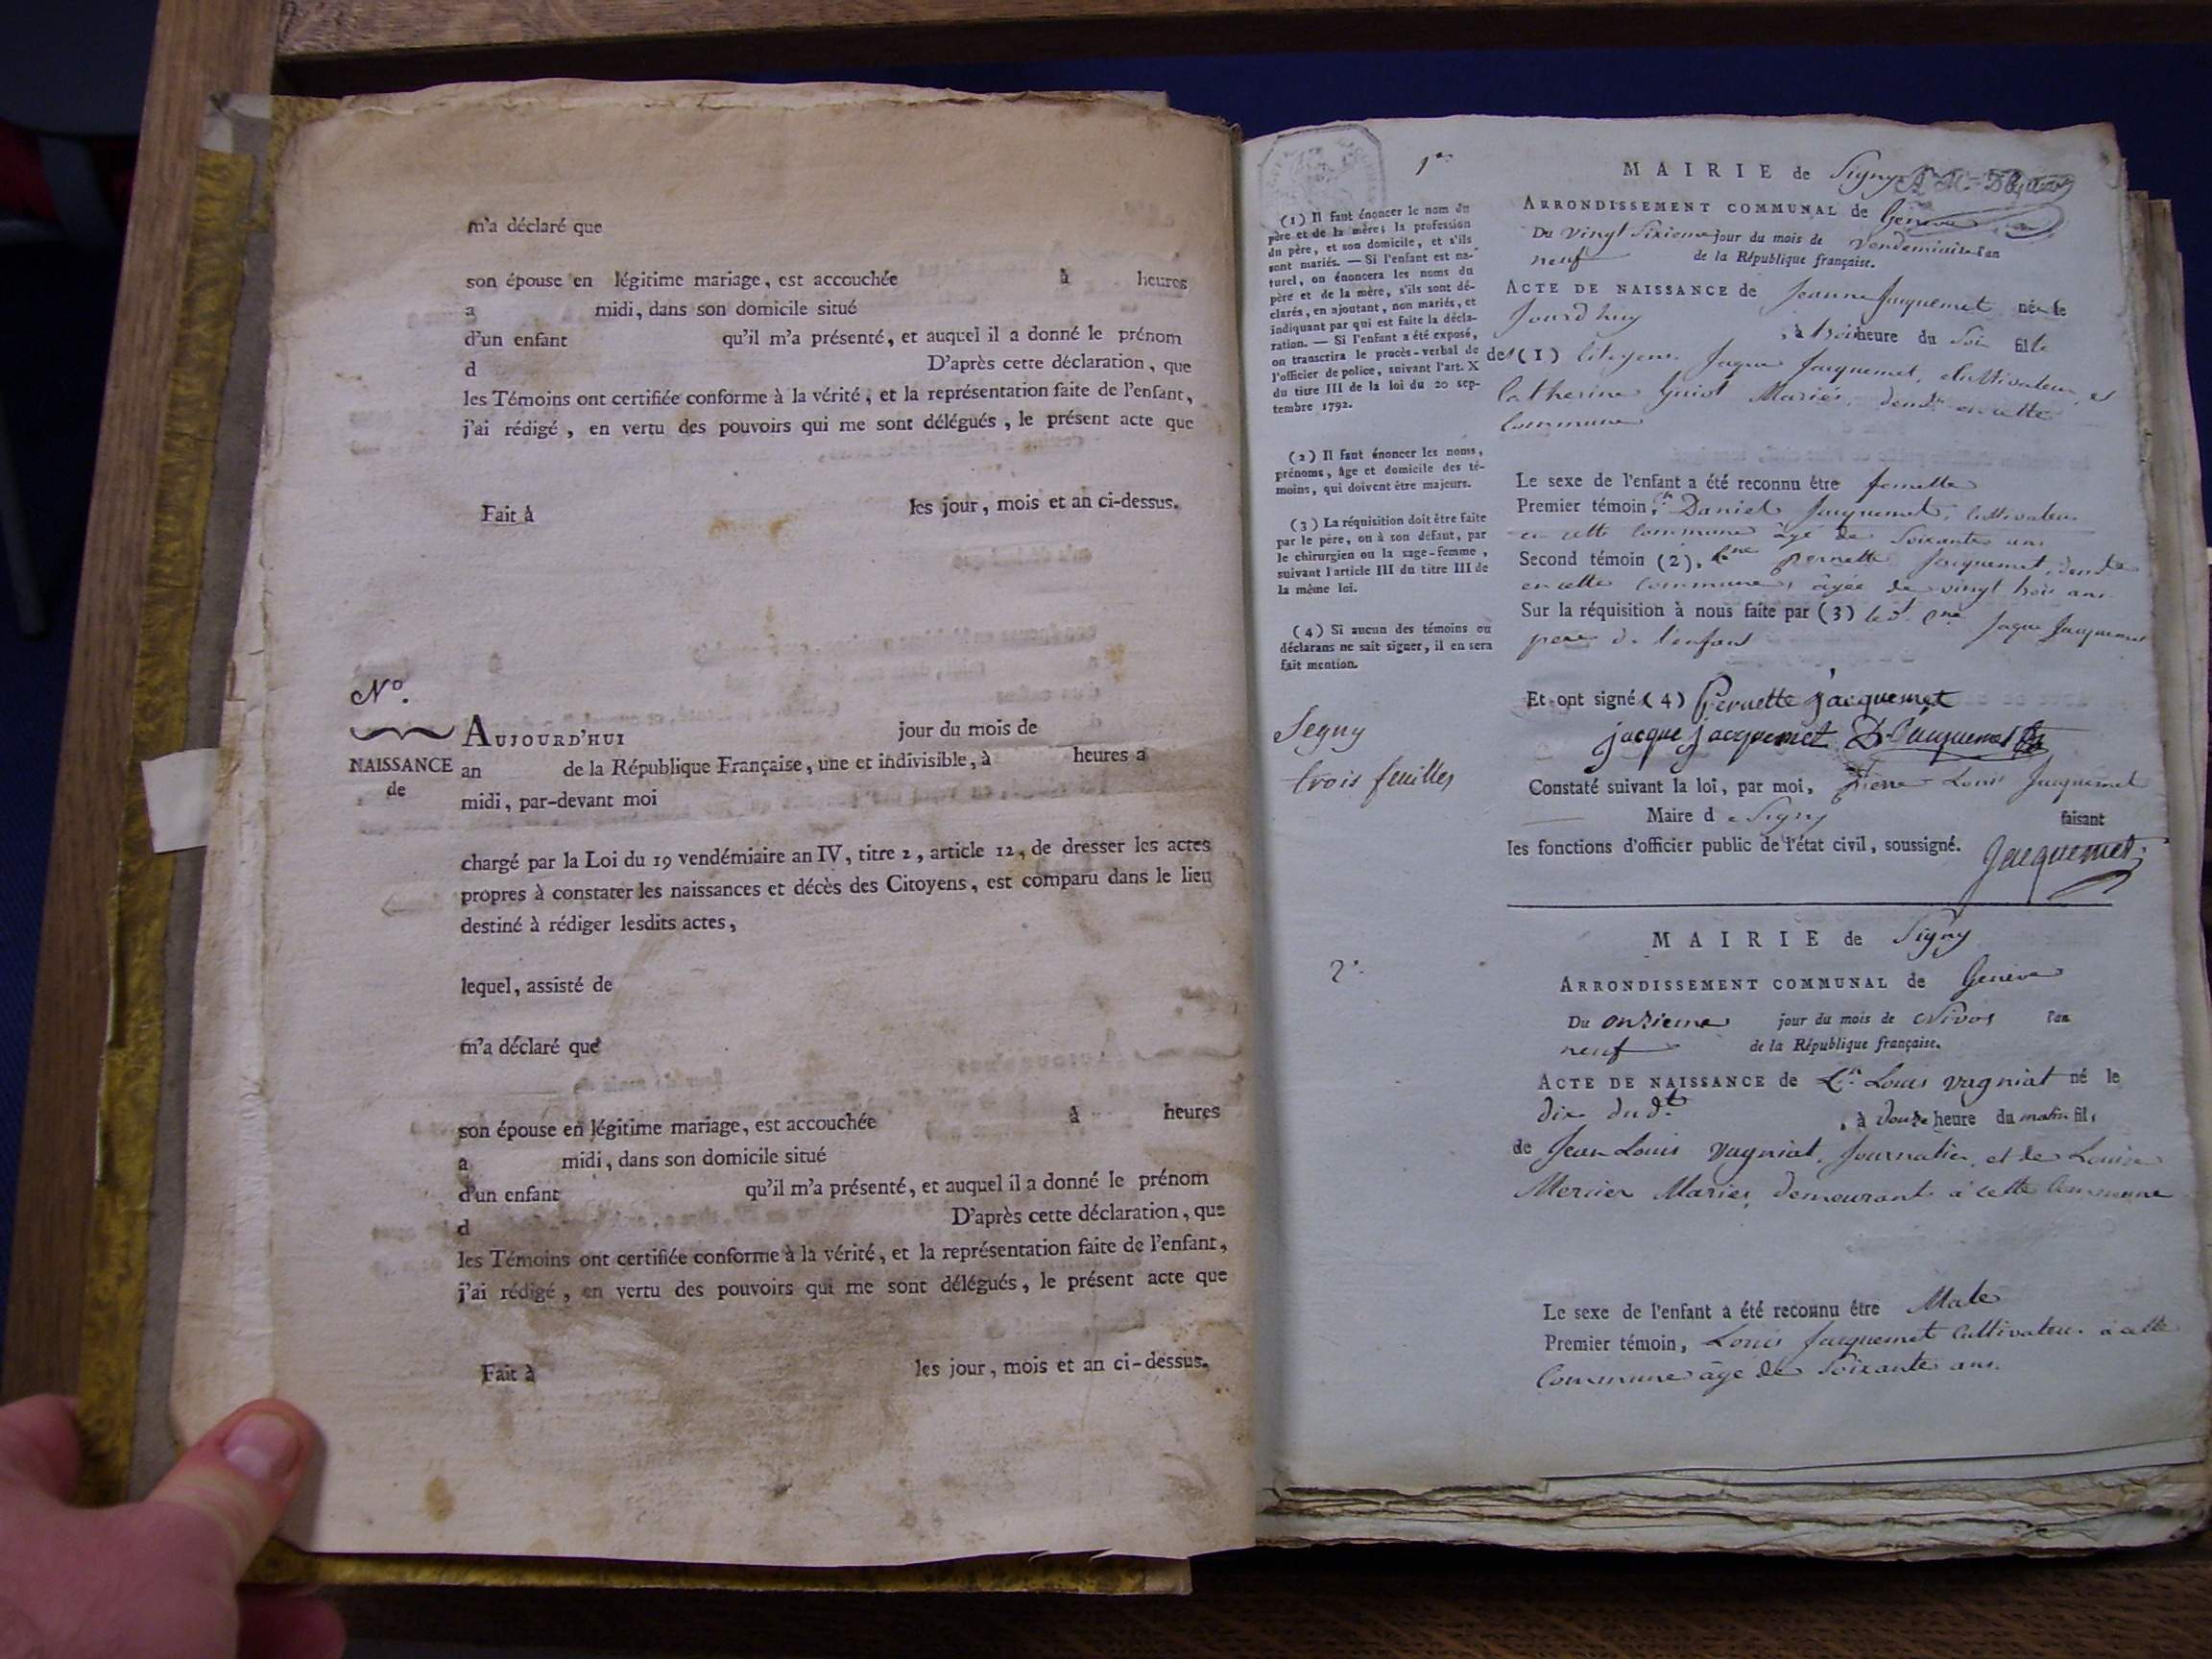 m'a déclaré que
son épouse en légitime mariage, est accouchée à heures
a midi, dans son domicile situé
d'un enfant qu'il m'a présenté, et auquel il a donné le prénom
d D'après cette déclaration, que
les Témoins ont certifiée conforme à la vérité, et la représentation faite de l'enfant,
j'ai rédigé, en vertu des pouvoirs qui me sont délégués, le présent acte que
Fait à les jour, mois et an ci-dessus.
No.
NAISSANCE
de
AUJOURD'HUI jour du mois de
an de la République Française, une et indivisible, à heures a
midi, par-devant moi
chargé par la Loi du 19 vendémiaire an IV, titre 2, article 12, de dresser les actes
propres à constater les naissances et décès des Citoyens, est comparu dans le lieu
destiné à rédiger lesdits actes,
lequel, assisté de
m'a déclaré que
son épouse en légitime mariage, est accouchée à heures
a midi, dans son domicile situé
d'un enfant qu'il m'a présenté, et auquel il a donné le prénom
d D'après cette déclaration, que
les Témoins ont certifiée conforme à la vérité, et la représentation faite de l'enfant,
j'ai rédigé, en vertu des pouvoirs qui me sont délégués, le présent acte que
Fait à les jour, mois et an ci-dessus.
(1) Il faut énoncer le nom du
père et de la mère; la profession
du père, et son domicile, et s'ils
sont mariés. — Si l'enfant est na-
turel, on énoncera les noms du
père et de la mère, s'ils sont dé-
clarés, en ajoutant, non mariés, et
indiquant par qui est faite la décla-
ration. — Si l'enfant a été exposé,
on transcrira le procès-verbal de
l'officier de police, suivant l'art. X
du titre III de la loi du 20 sep-
tembre 1792.
(2) Il faut énoncer les noms,
prénoms, âge et domicile des té-
moins, qui doivent être majeurs.
(3) La réquisition doit être faite
par le père, ou à son défaut, par
le chirurgien ou la sage-femme,
suivant l'article III du titre III de
la même loi.
(4) Si aucun des témoins ou
déclarans ne sait signer, il en sera
fait mention.
Segny
trois feuilles
1er
MAIRIE de Signy
ARRONDISSEMENT COMMUNAL de Geneve
Du vingt Sixieme jour du mois de Vendemiaire l'an
neuf de la République française.
ACTE DE NAISSANCE de Jeanne Jacquemet née le
Jourdhuy, à trois heure du Soir fille
des (1) Citoyens Jaque Jacquemet, Cultivateur, et
Catherine Guiot Mariés, demt en cette
Commune
Le sexe de l'enfant a été reconnu être femelle
Premier témoin, Cn Daniel Jacquemet, Cultivateur
en cette Commune âgé de Soixante ans
Second témoin (2), Cne Pernette Jacquemet, demte
en cette Commune, âgée de vingt trois ans
Sur la réquisition à nous faite par (3) led. Jaque Jacquemet
pere de l'enfant
Et ont signé (4) Pernette jacquemet
jacque jacquemet D. Jacquemet
Constaté suivant la loi, par moi, Pierre Louis Jacquemet
Maire de Signy faisant
les fonctions d'officier public de l'état civil, soussigné. Jacquemet
2e
MAIRIE de Signy
ARRONDISSEMENT COMMUNAL de Geneve
Du onzieme jour du mois de Nivos l'an
neuf de la République française.
ACTE DE NAISSANCE de Cn Louis vagniat né le
dix dudt, à douze heure du matin fils
de Jean Louis Vagniat, Journalier, et de Louise
Mercier Mariés, demeurant à cette Commune
Le sexe de l'enfant a été reconnu être Male
Premier témoin, Louis Jacquemet Cultivateur à cette
Commune âgé de Soixante ans.